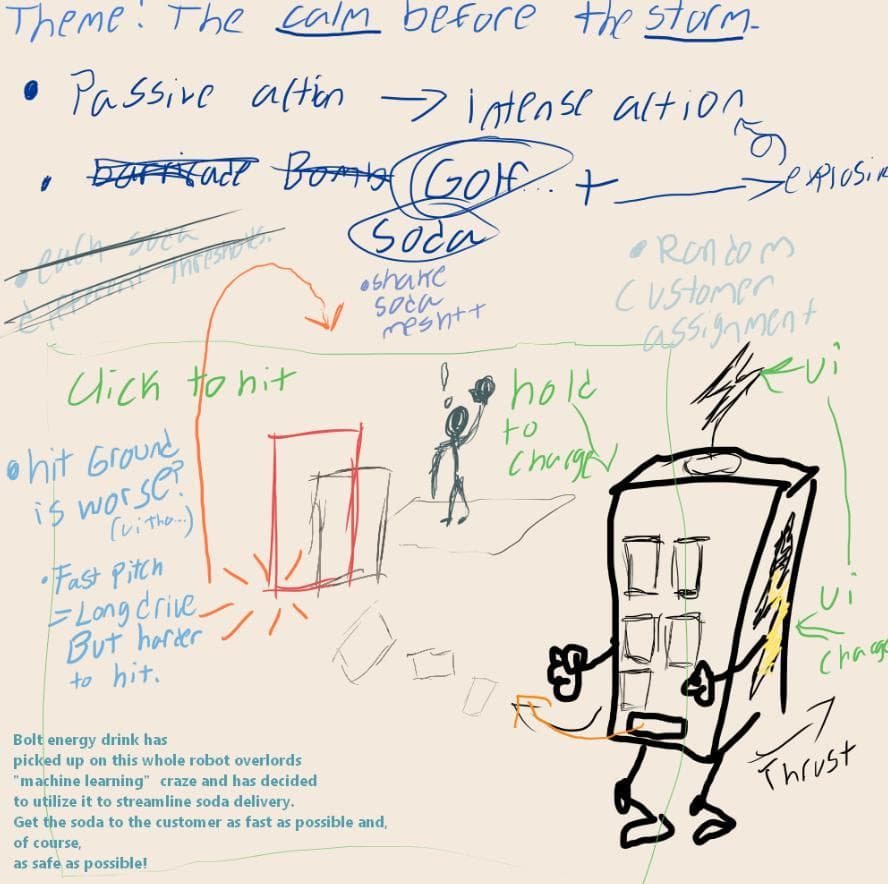 Theme: The calm before the storm.
• Passive action → intense action
• barricade Bomb (Golf... + ___ → explosive
Soda
• each soda
different thresholds.
• shake
soda
mesh++
• Random
customer
assignment
Click to hit
hold
to
charge
ui
• hit Ground
is worse?
(ui tho...)
• Fast Pitch
= Long drive
But harder
to hit.
ui
charge
Thrust
Bolt energy drink has
picked up on this whole robot overlords
"machine learning" craze and has decided
to utilize it to streamline soda delivery.
Get the soda to the customer as fast as possible and,
of course,
as safe as possible!